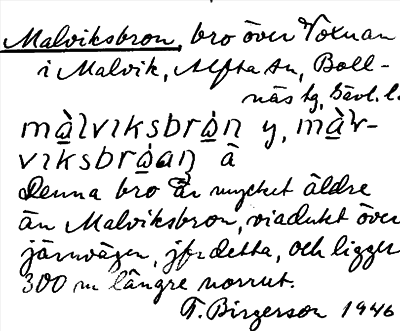 Malviksbron, bro över Voxnan
i Malvik, Alfta sn, Boll-
näs tg, Gävl. l.
màlviksbrȯ̀n y, màlv-
viksbrȯ̀aṇ ä
Denna bro är mycket äldre
än Malviksbron, viadukt över
järnvägen, jfr detta, och ligger
300 m längre norrut.
T. Birgerson 1946